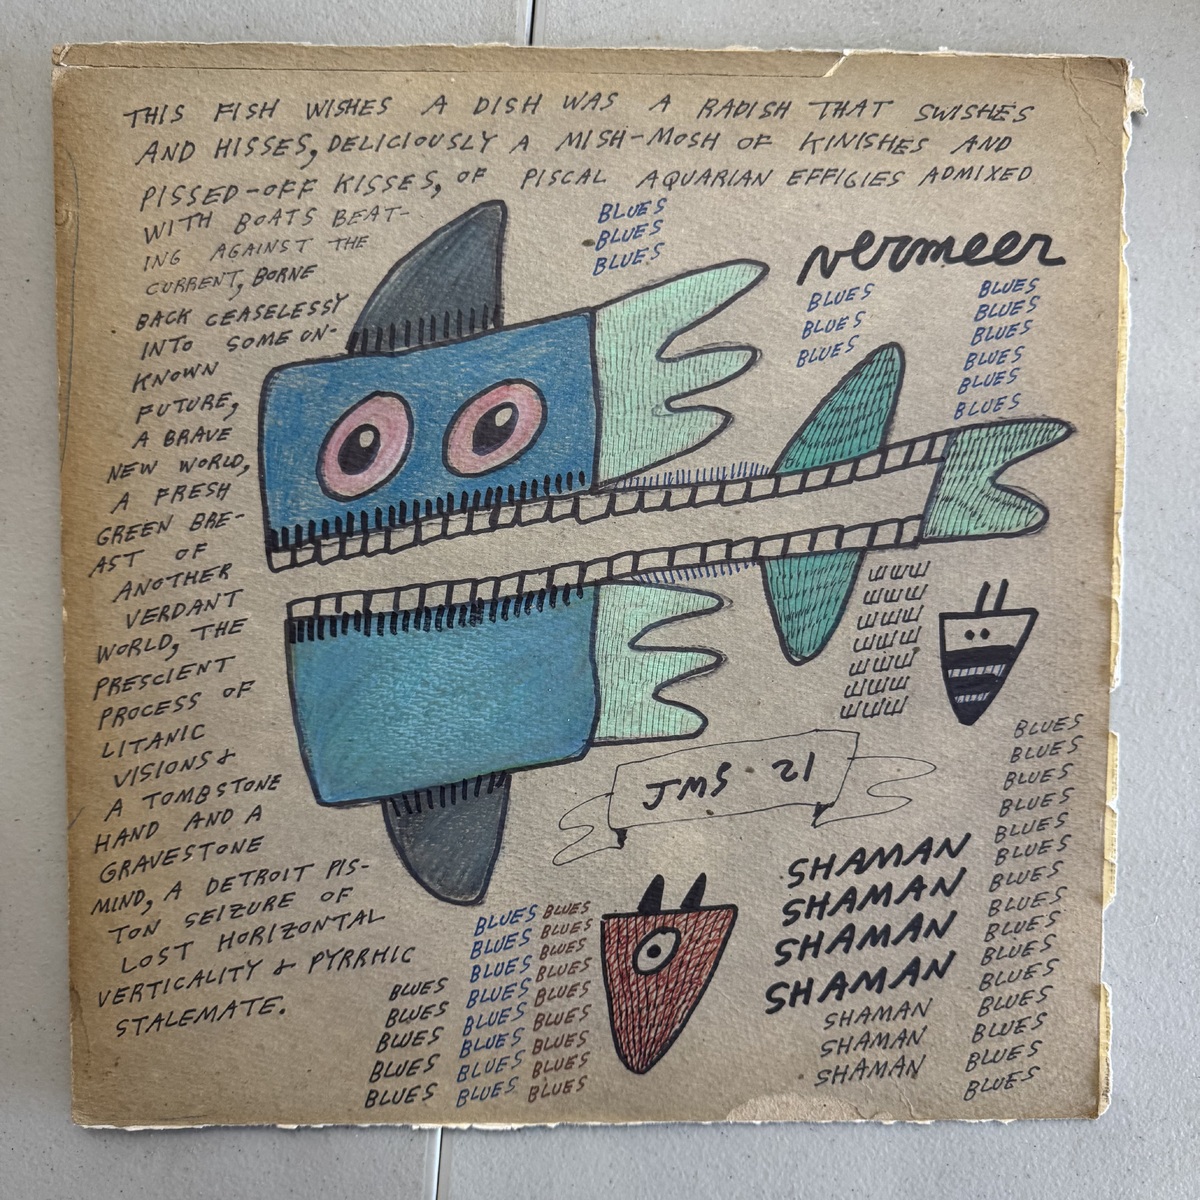 THIS FISH WISHES A DISH WAS A RADISH THAT SWISHES
AND HISSES, DELICIOUSLY A MISH-MOSH OF KINISHES AND
PISSED-OFF KISSES, OF PISCAL AQUARIAN EFFIGIES ADMIXED
WITH BOATS BEAT-
ING AGAINST THE
CURRENT, BORNE
BACK CEASELESSY
INTO SOME ON-
KNOWN
FUTURE,
A BRAVE
NEW WORLD,
A FRESH
GREEN BRE-
AST OF
ANOTHER
VERDANT
WORLD, THE
PRESCIENT
PROCESS OF
LITANIC
VISIONS &
A TOMBSTONE
HAND AND A
GRAVESTONE
MIND, A DETROIT PIS-
TON SEIZURE OF
LOST HORIZONTAL
VERTICALITY & PYRRHIC
STALEMATE.
BLUES
BLUES
BLUES
vermeer
BLUES
BLUES
BLUES
BLUES
BLUES
BLUES
BLUES
BLUES
BLUES
JMS · 21
SHAMAN
SHAMAN
SHAMAN
SHAMAN
SHAMAN
SHAMAN
SHAMAN
BLUES
BLUES
BLUES
BLUES
BLUES
BLUES
BLUES
BLUES
BLUES
BLUES
BLUES
BLUES
BLUES
BLUES
BLUES
BLUES
BLUES
BLUES
BLUES
BLUES
BLUES
BLUES
BLUES
BLUES
BLUES
BLUES
BLUES
BLUES
BLUES
BLUES
BLUES
BLUES
BLUES
BLUES
BLUES
BLUES